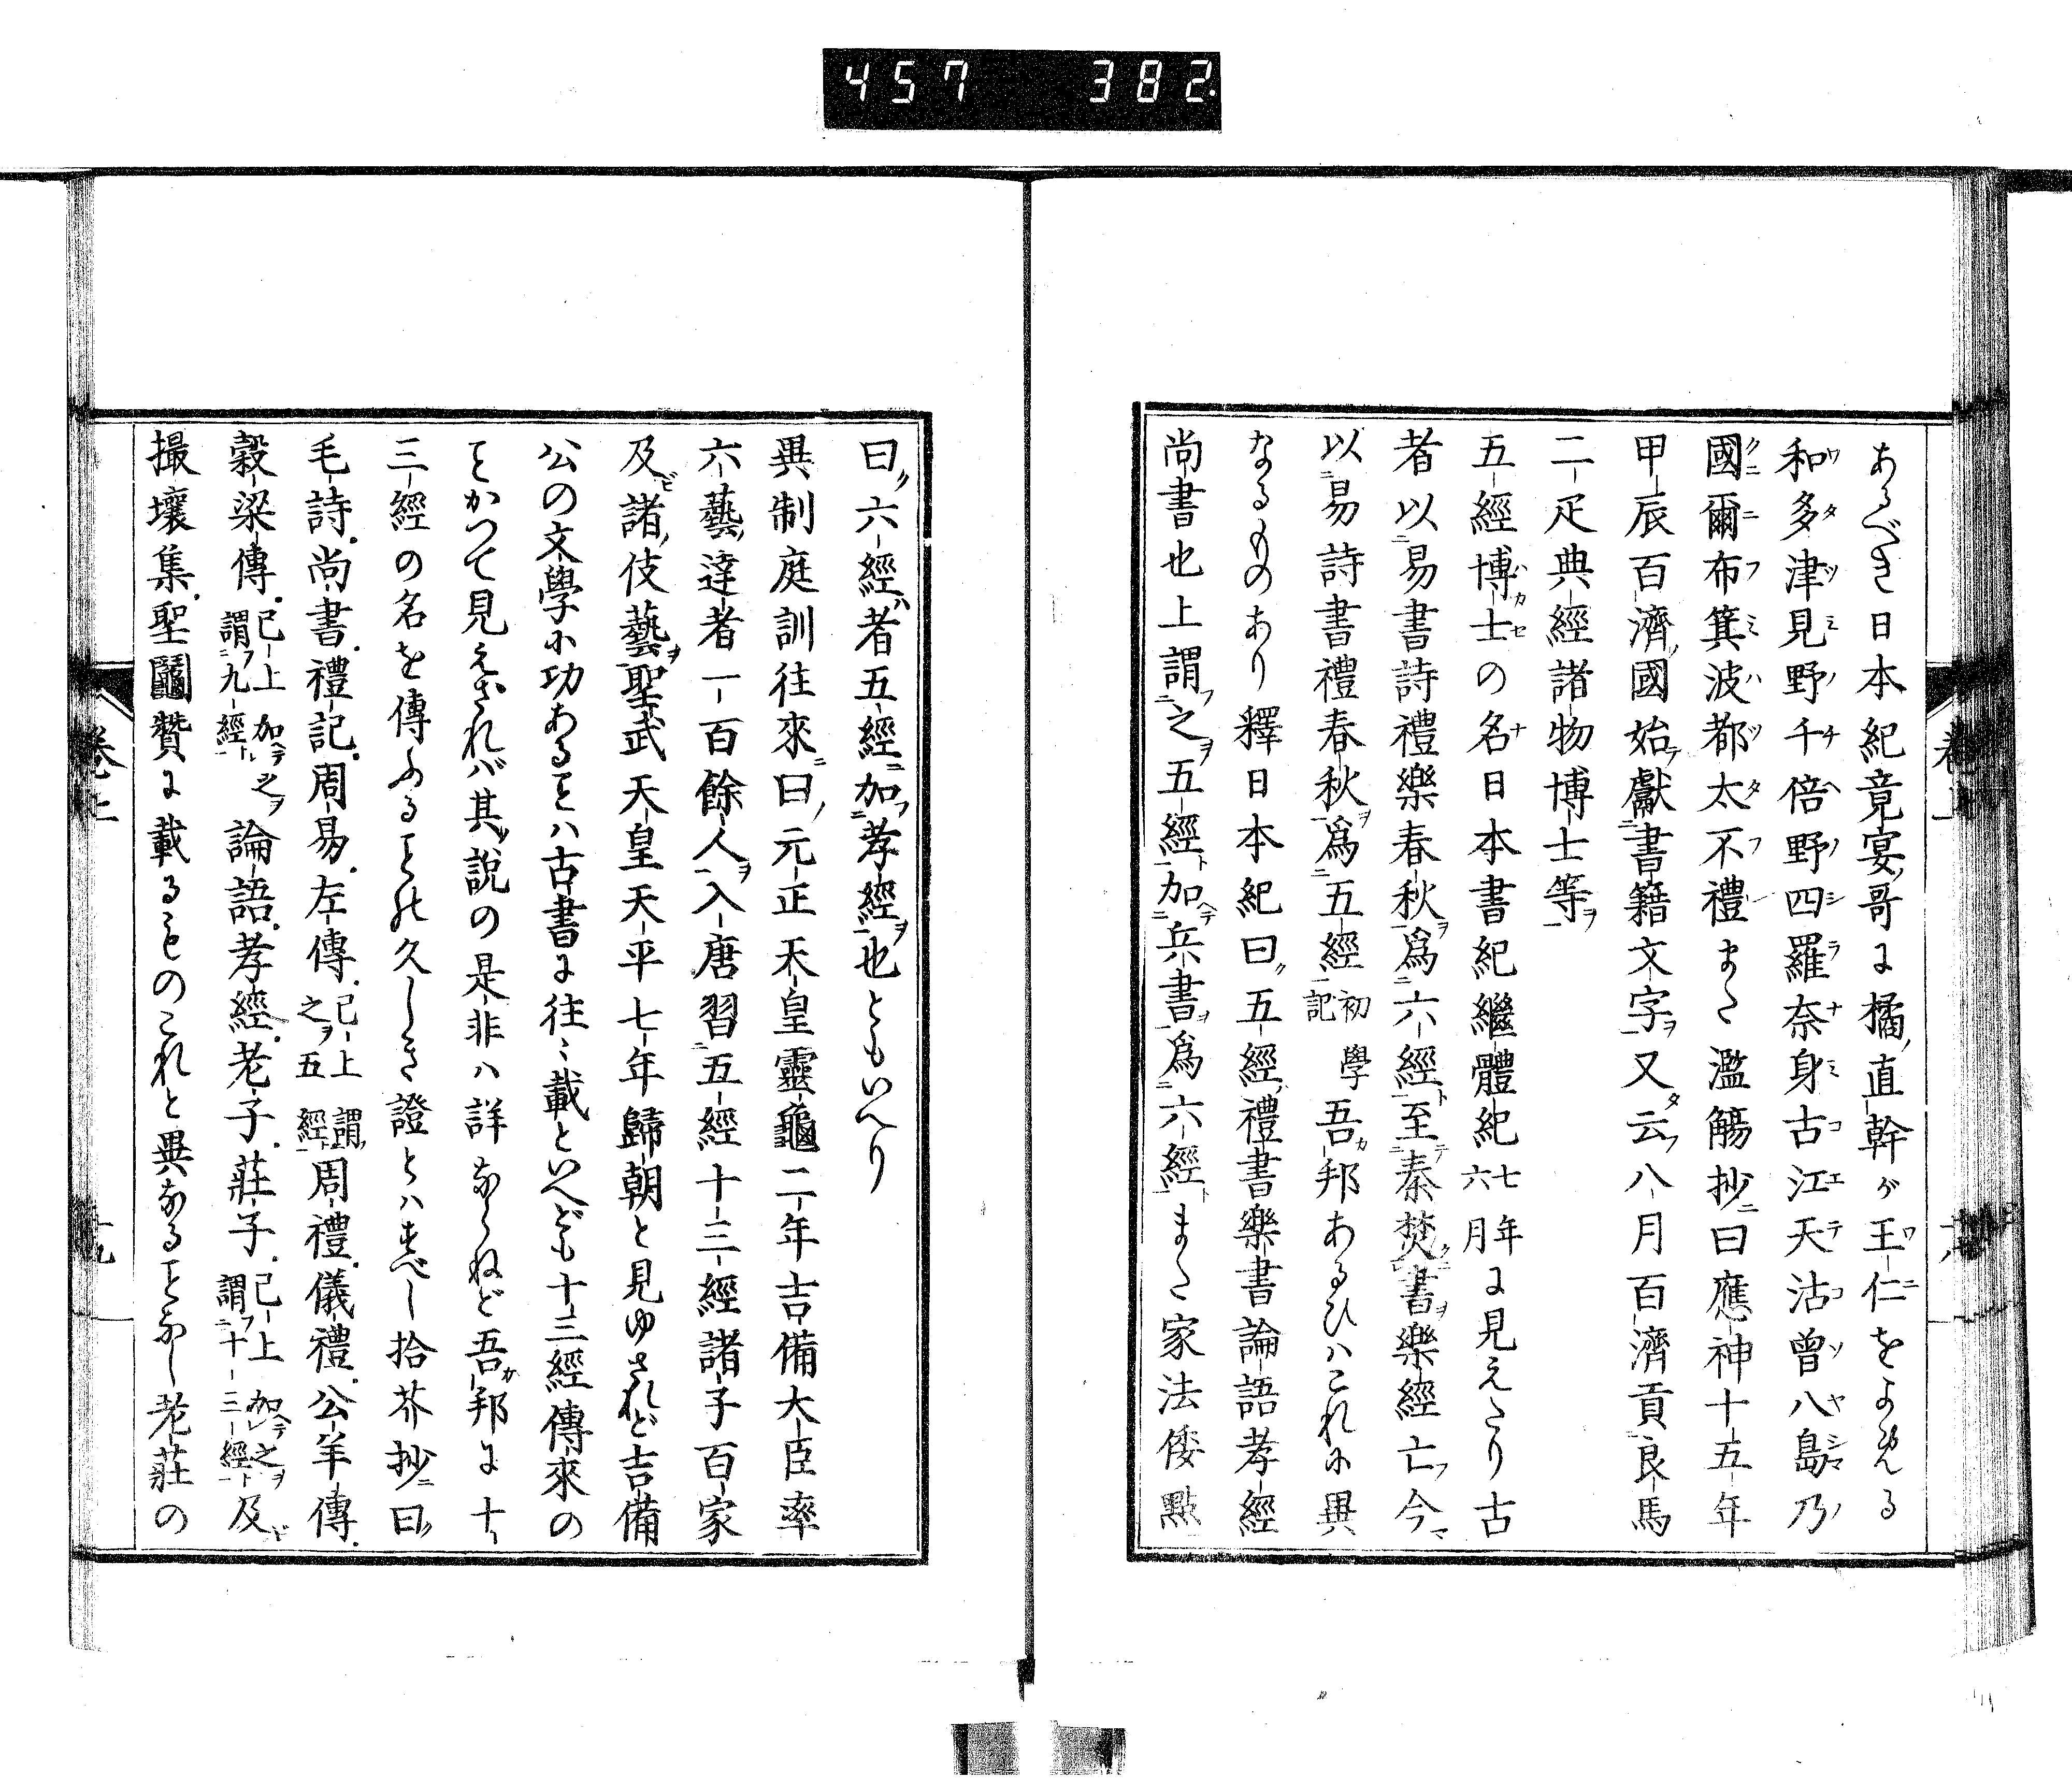 457 382
あるべき日本紀竟宴哥に橘直幹が王仁をよめる
和多津見野千倍野四羅奈身古江天沽曾八島乃
國爾布箕波都太不禮また濫觴抄曰應神十五年
甲辰百濟國始獻書籍文字又云八月百濟貢良馬
二疋典經諸物博士等
五經博士の名日本書紀繼體紀七年六月に見えたり古
者以易書詩禮樂春秋爲六經至秦焚書樂經亡今
以易詩書禮春秋爲五經初學記吾邦あるひハこれに異
なるものあり釋日本紀曰五經禮書樂書論語孝經
尚書也上謂之五經加兵書爲六經また家法倭點
曰六經者五經加孝經也ともいへり
異制庭訓往來曰元正天皇靈龜二年吉備大臣率
六藝達者一百餘人入唐習五經十三經諸子百家
及諸伎藝聖武天皇天平七年歸朝と見ゆされど吉備
公の文學に功あることハ古書に往〻載といへども十三經傳來の
ことかつて見えざれバ其説の是非ハ詳ならねど吾邦に十
三經の名を傳ふること久しき證とハすべし拾芥抄曰
毛詩尚書禮記周易左傳已上謂之五經周禮儀禮公羊傳
穀梁傳已上謂九經加之論語孝經老子莊子已上謂十三經加之及
撮壤集聖圖贊に載るものこれと異なることなし老莊の
卷上
十九